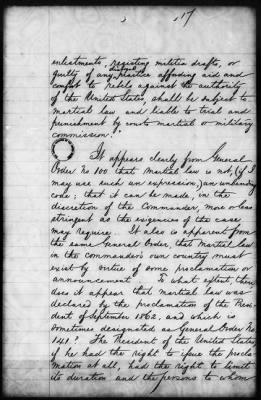 17
enlistments, resisting militia drafts, or
guilty of any disloyal practice affording aid and
comfort to rebels against the authority
of the United States, shall be subject to
martial law and liable to trial and
punishment by courts martial or military
commission."
It appears clearly from General
Order No 100 that martial law is not, (if I
may use such an expression,) an unbending
code; that it can be made, in the
discretion of the Commander, more or less
stringent as the exigencies of the case
may require. It also is apparent from
the same General Order, that Martial law
in the commander's own country must
exist by virtue of some proclamation or
announcement. To what extent, then,
does it appear that martial law was
declared by the proclamation of the Presi
dent of September 1862, and which is
sometimes designated as General Order No
141? The President of the United States,
if he had the right to issue the procla-
mation at all, had the right to limit
its duration and the persons to whom